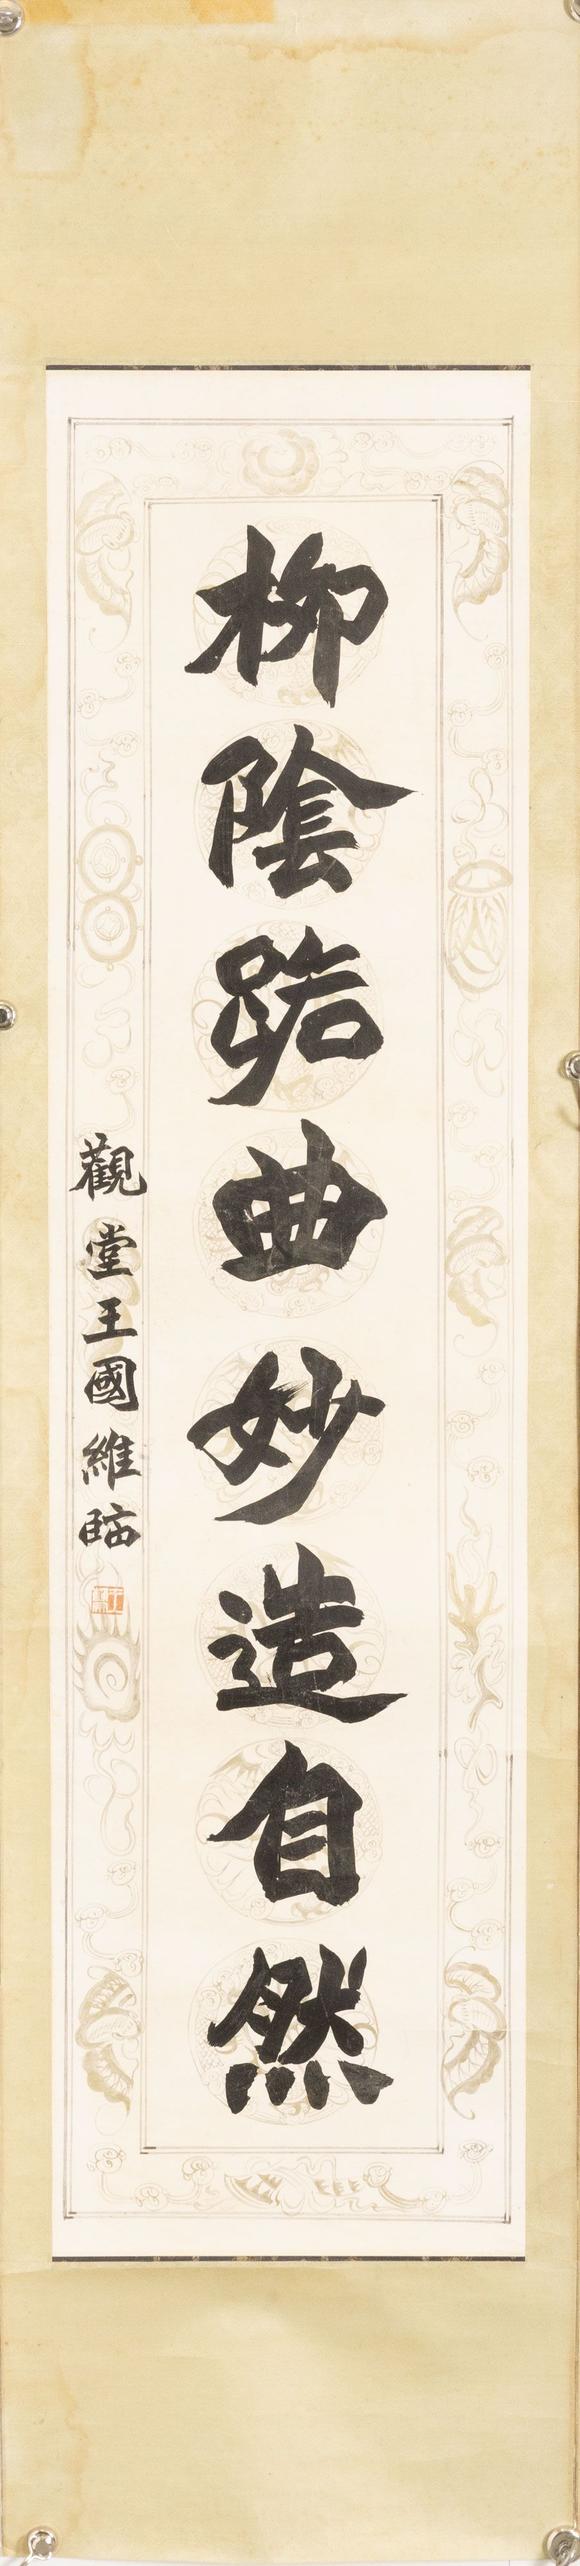 柳陰路曲妙造自然
觀堂王國維臨